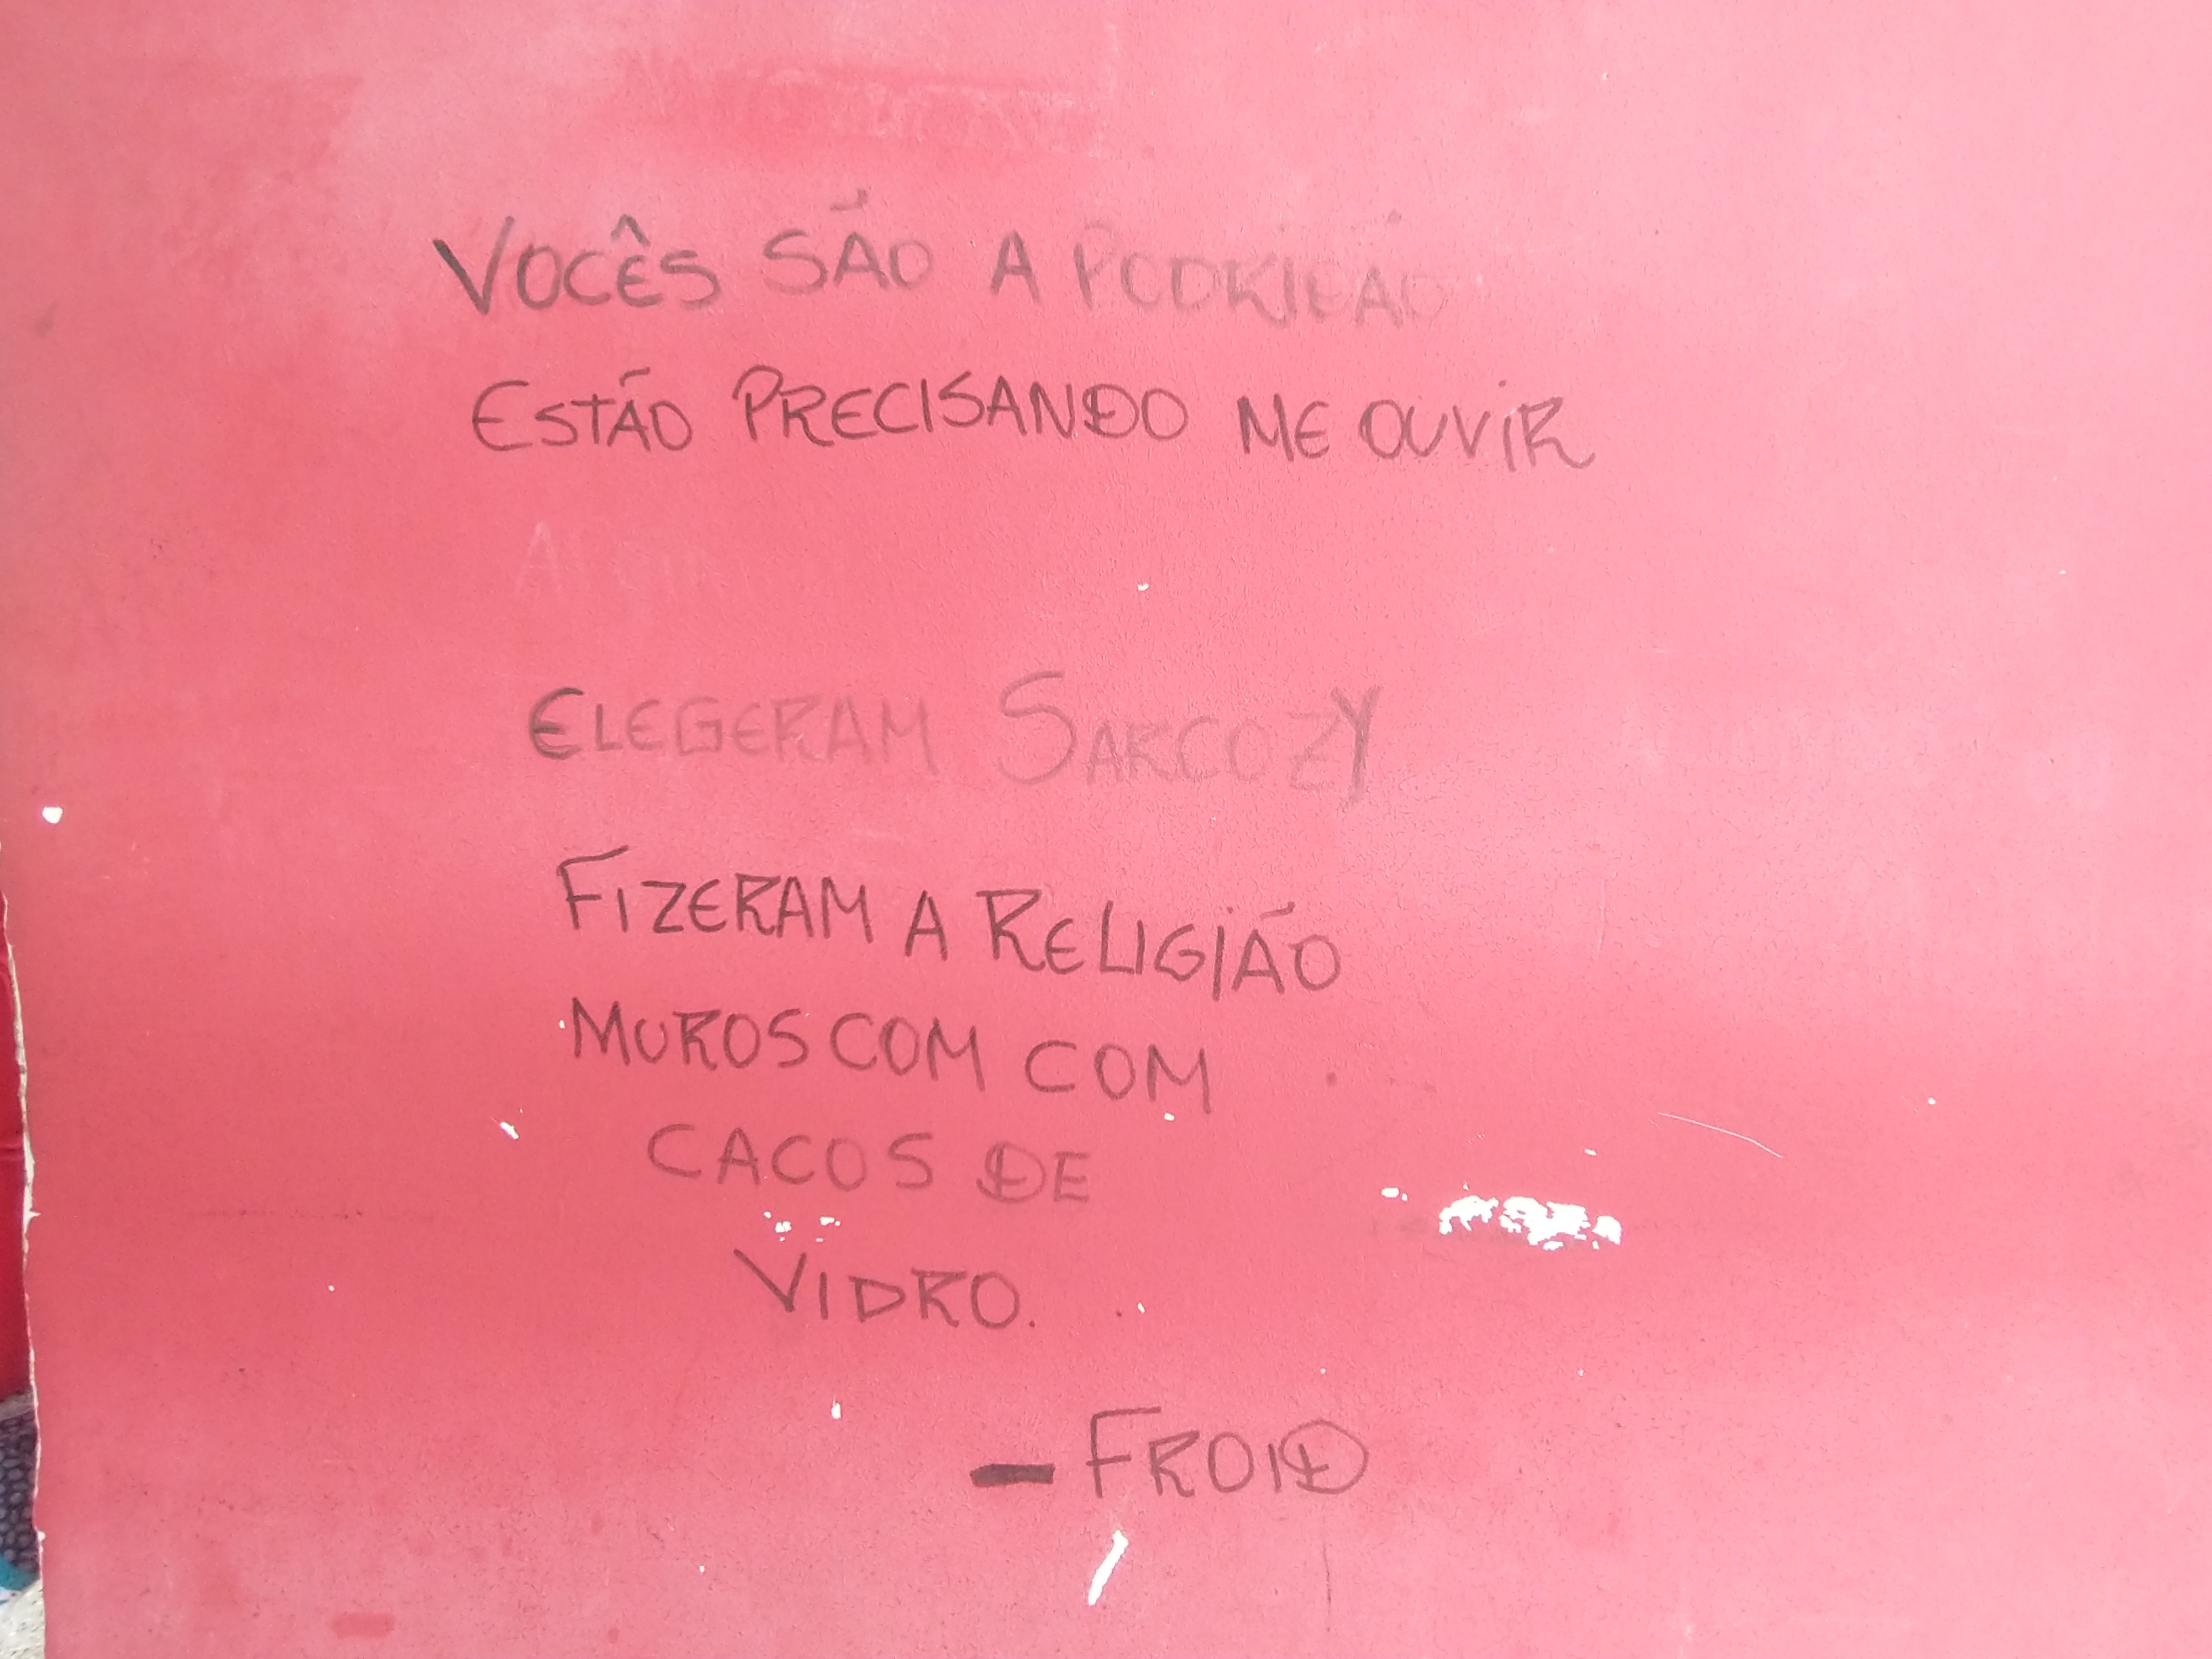 VOCÊS SÃO A PODRIDÃO
ESTÃO PRECISANDO ME OUVIR
ELEGERAM SARCOZY
FIZERAM A RELIGIÃO
MUROS COM COM
CACOS DE
VIDRO.
- FROID